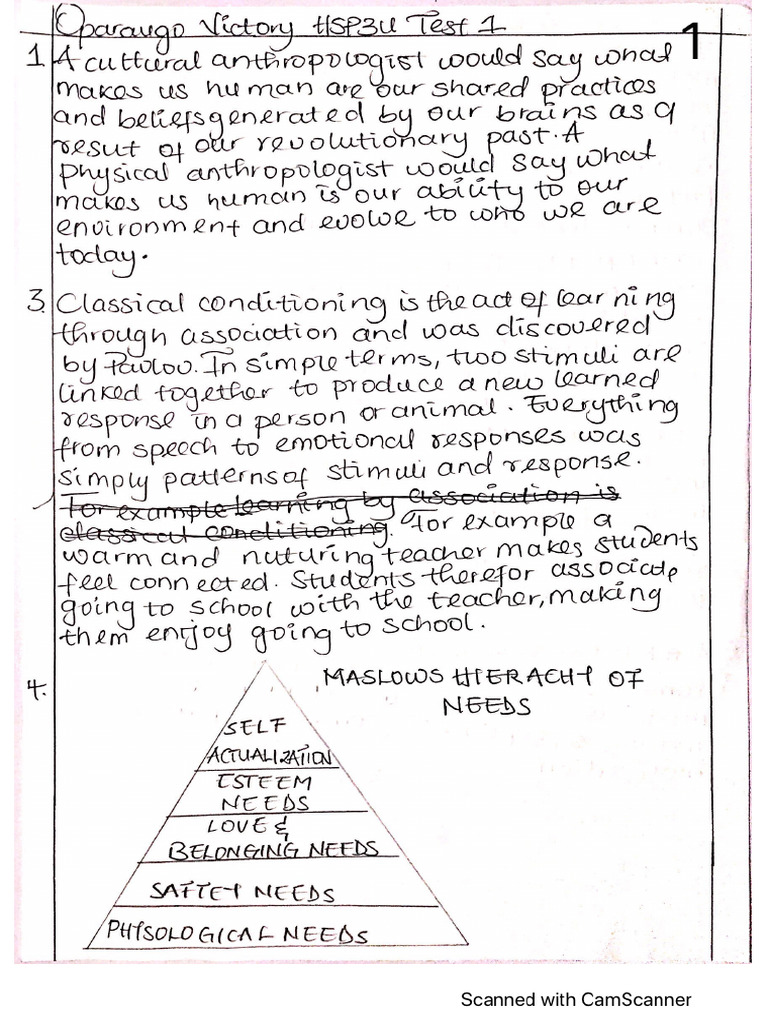 Oparaugo Victory HSP3U Test 1
1
1 A cultural anthropologist would say what
makes us human are our shared practices
and beliefs generated by our brains as a
result of our revolutionary past. A
physical anthropologist would say what
makes us human is our ability to our
environment and evolve to who we are
today.
3. Classical conditioning is the act of learning
through association and was discovered
by Pavlov. In simple terms, two stimuli are
linked together to produce a new learned
response in a person or animal. Everything
from speech to emotional responses was
simply patterns of stimuli and response.
For example learning by association is
classical conditioning. For example a
warm and nuturing teacher makes students
feel connected. Students therefor associate
going to school with the teacher, making
them enjoy going to school.
4. MASLOWS HIERACHY OF
NEEDS
SELF
ACTUALIZATION
ESTEEM
NEEDS
LOVE &
BELONGING NEEDS
SAFTEY NEEDS
PHYSOLOGICAL NEEDS
Scanned with CamScanner